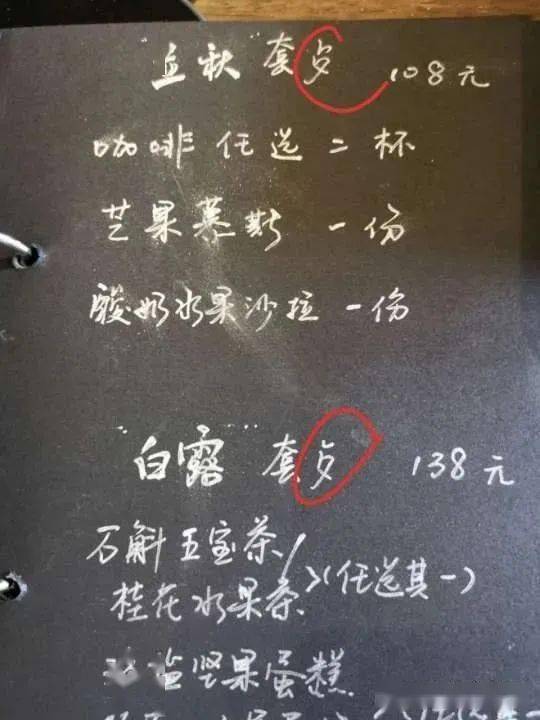 "立秋"套歺 108元
咖啡任选二杯
芒果慕斯 一份
酸奶水果沙拉 一份
"白露"套歺 138元
石斛五宝茶/
桂花水果茶 >(任选其一)
坚果蛋糕